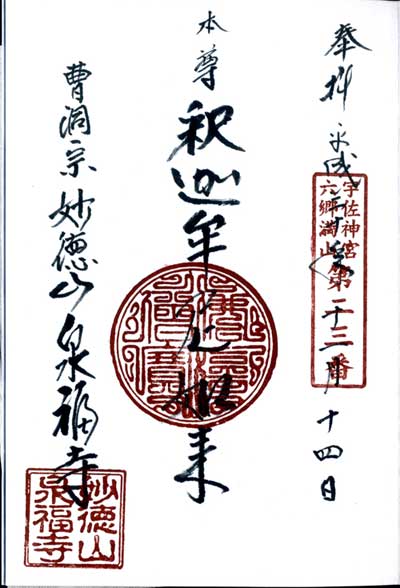 奉拝 平成 十四日
宇佐神宮
六郷満山
第二十三番
本尊
釈迦牟尼如来
曹洞宗 妙德山 泉福寺
妙徳山
泉福寺